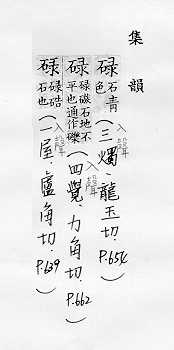 集韻
碌 石青色(三燭．龍玉切．P.654)入
碌 石地不平也通作礫(四覺．力角切．P.662)入
碌 碌硞石也(一屋．盧角切．P.639)入